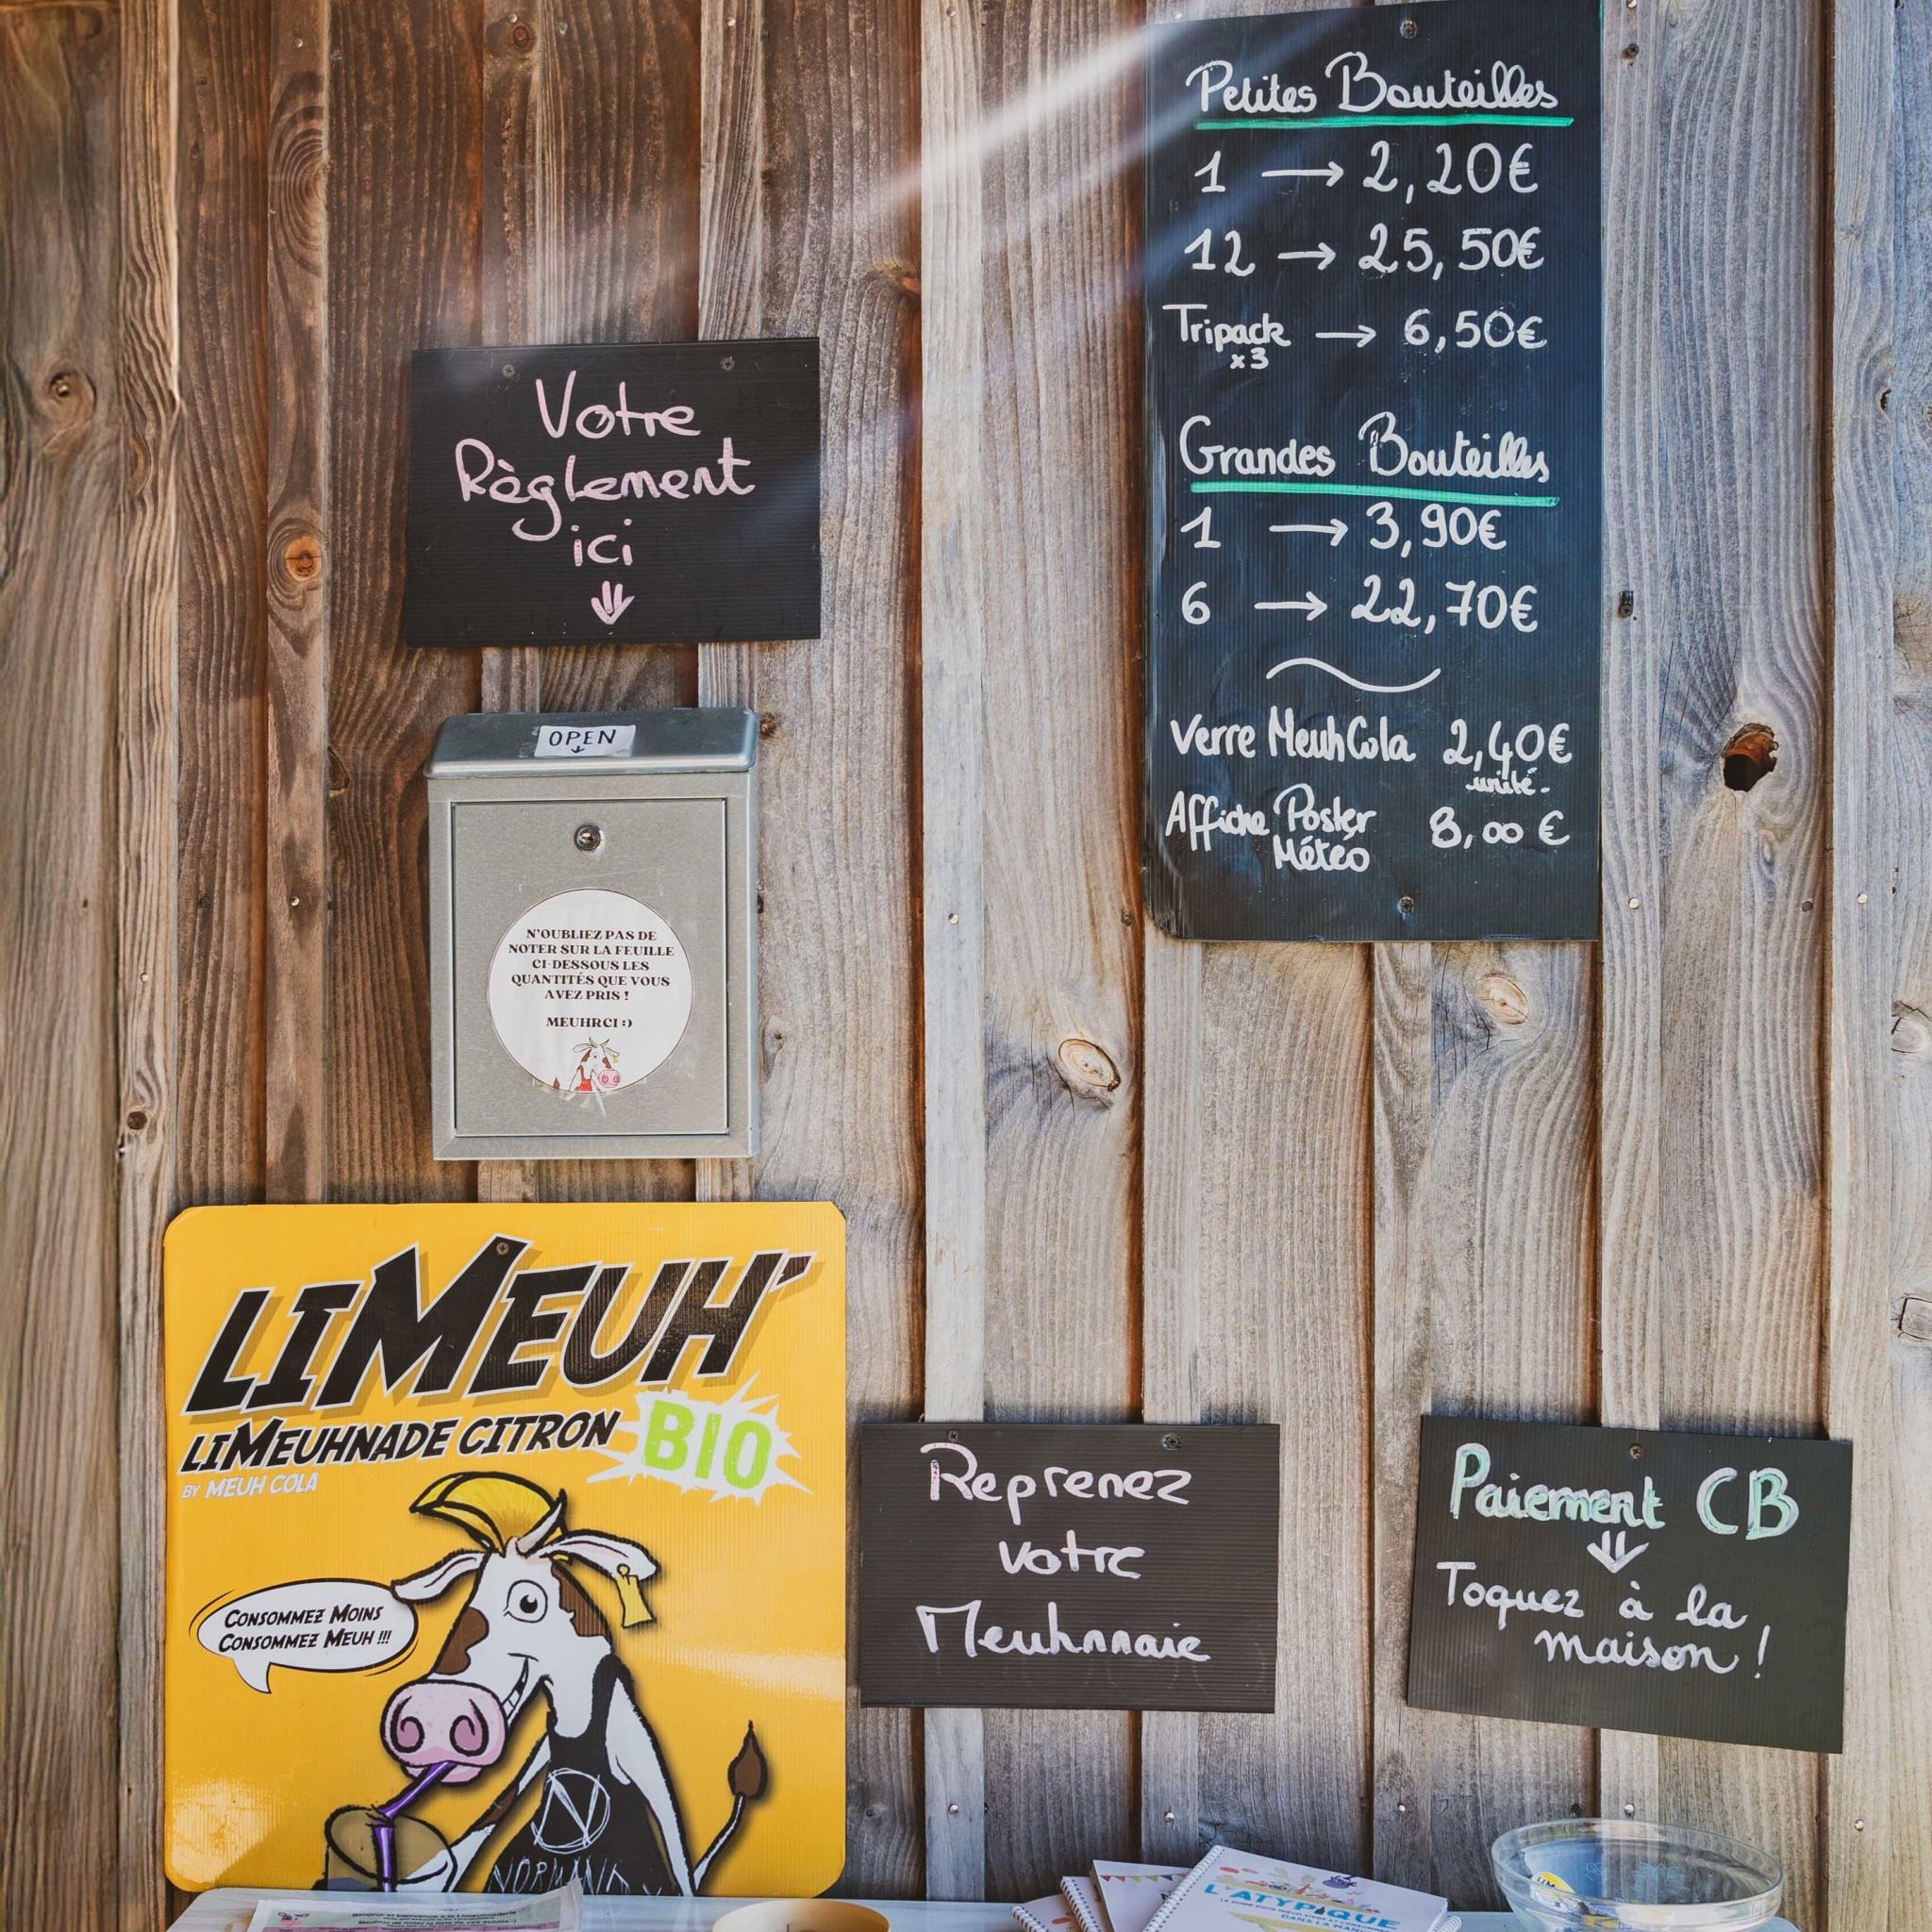 Petites Bouteilles
1 → 2,20€
12 → 25,50€
Tripack → 6,50€
x3
Grandes Bouteilles
1 → 3,90€
6 → 22,70€
Verre MeuhCola 2,40€
unité.
Affiche Poster 8,00 €
Météo
Votre
Règlement
ici
OPEN
N'OUBLIEZ PAS DE
NOTER SUR LA FEUILLE
CI-DESSOUS LES
QUANTITÉS QUE VOUS
AVEZ PRIS !
MEUHRCI :)
LIMEUH'
LIMEUHNADE CITRON BIO
BY MEUH COLA
CONSOMMEZ MOINS
CONSOMMEZ MEUH !!!
NORMANDY
Reprenez
votre
Meuhnnaie
Paiement CB
Toquez à la
maison !
L'ATYPIQUE